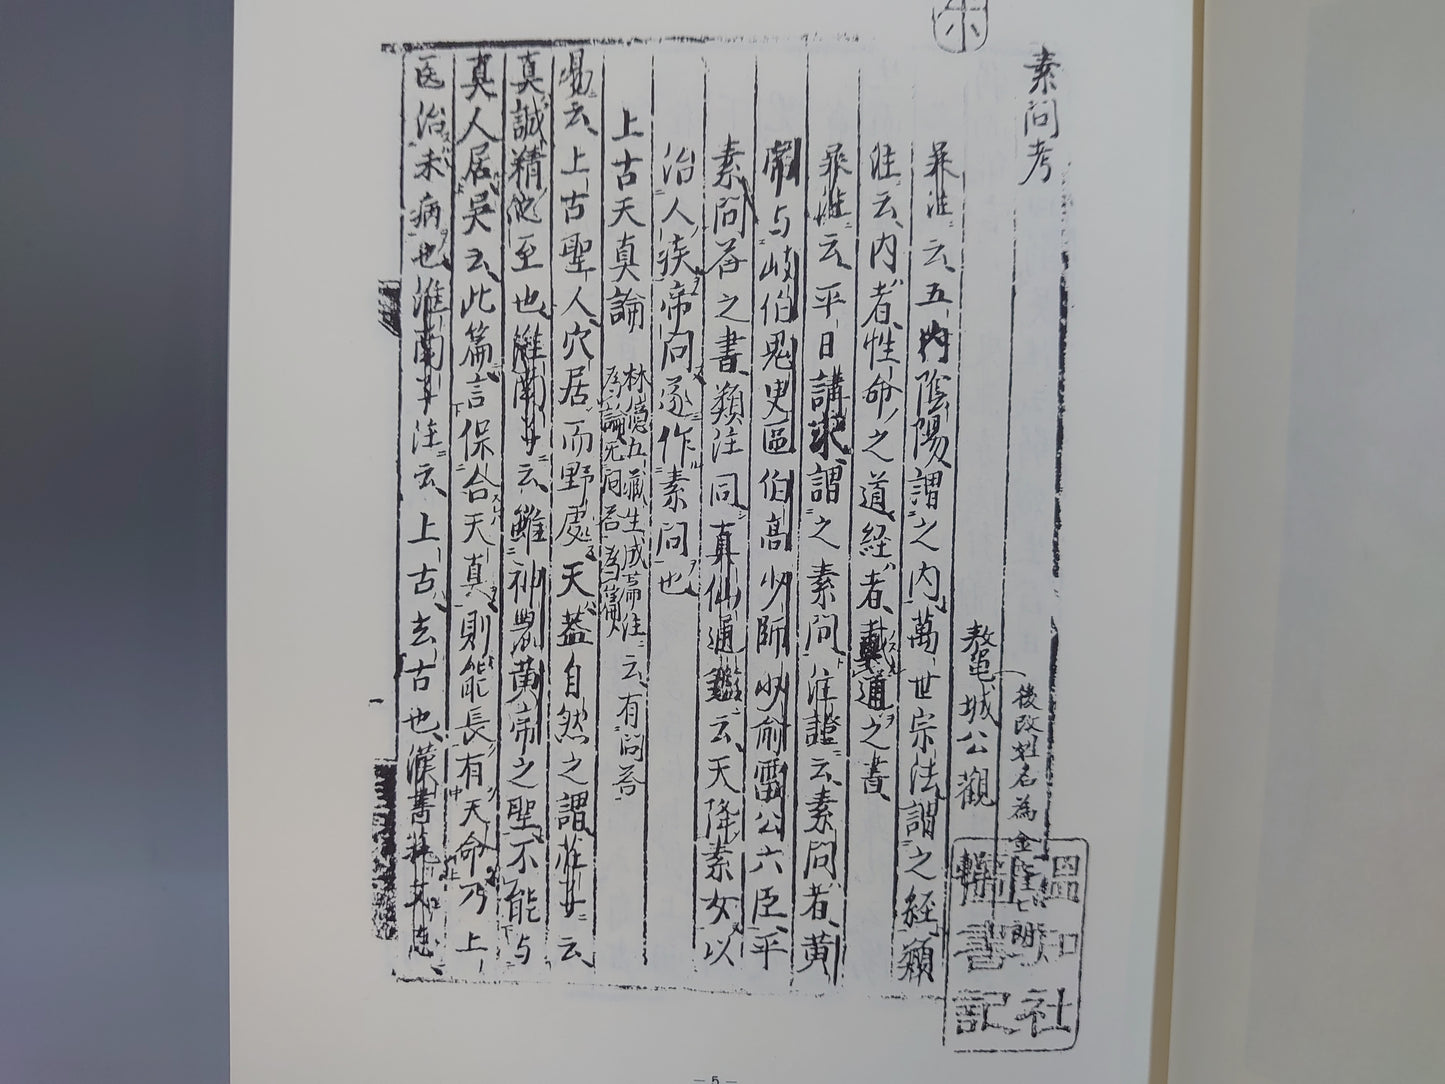 素問考
鼇城公觀
後改姓名為金窪七朗
吳注云五内陰陽謂之内萬世宗法謂之経類
注云内者性命之道経者載道之書
吳注云平日講求謂之素問注證云素問者黃
帝与岐伯鬼臾區伯高少師少俞雷公六臣平
素問荅之書類注同真仙通鑑云天降素女以
治人疾帝問遂作素問也
上古天真論
林億五藏生成篇注云有問荅
為論无問荅為篇
易云上古聖人穴居而野處天蓋自然之謂莊子云
真誠精他至也淮南子云雖神農黃帝之聖不能与
真人居吳云此篇言保合天真則能長有天命乃上
医治未病也淮南子注云上古去古也漢書藝文志
書記
社
— 5 —